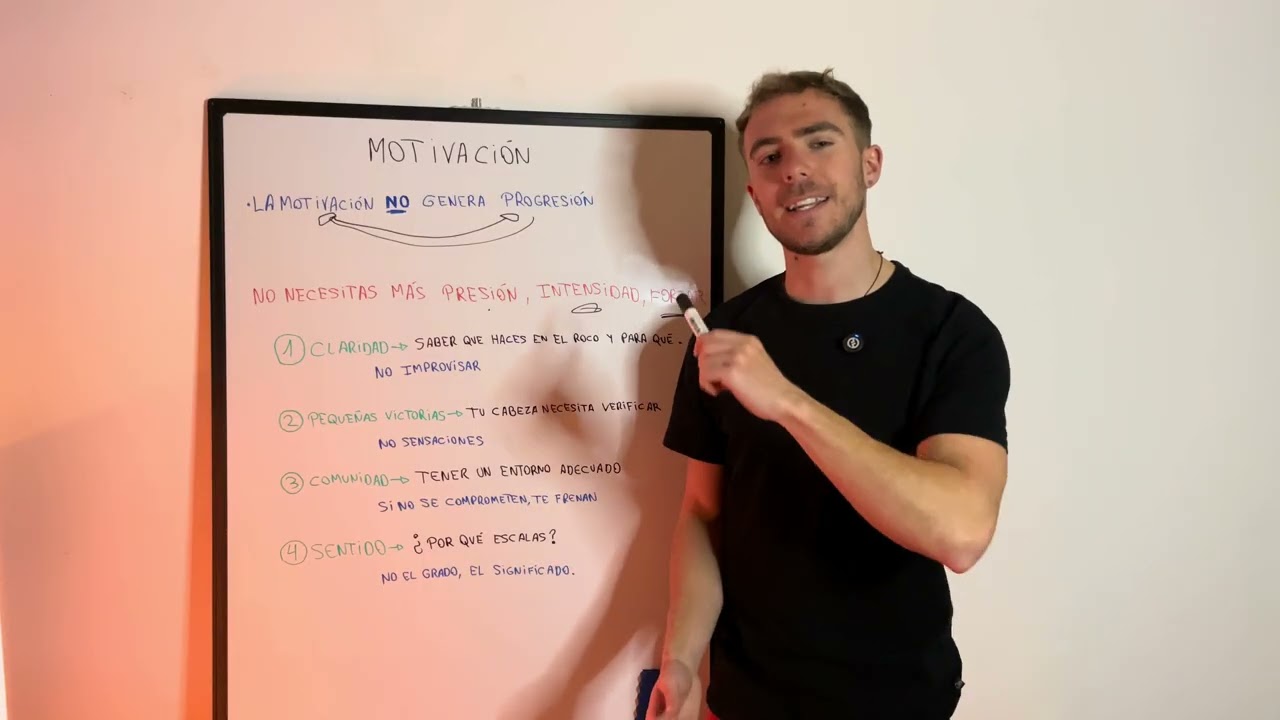 MOTIVACIÓN
·LA MOTIVACIÓN NO GENERA PROGRESIÓN
NO NECESITAS MÁS PRESIÓN, INTENSIDAD,
1 CLARIDAD → SABER QUE HACES EN EL ROCO Y PARA QUÉ.
NO IMPROVISAR
2 PEQUEÑAS VICTORIAS → TU CABEZA NECESITA VERIFICAR
NO SENSACIONES
3 COMUNIDAD → TENER UN ENTORNO ADECUADO
SI NO SE COMPROMETEN, TE FRENAN
4 SENTIDO → ¿POR QUÉ ESCALAS?
NO EL GRADO, EL SIGNIFICADO.